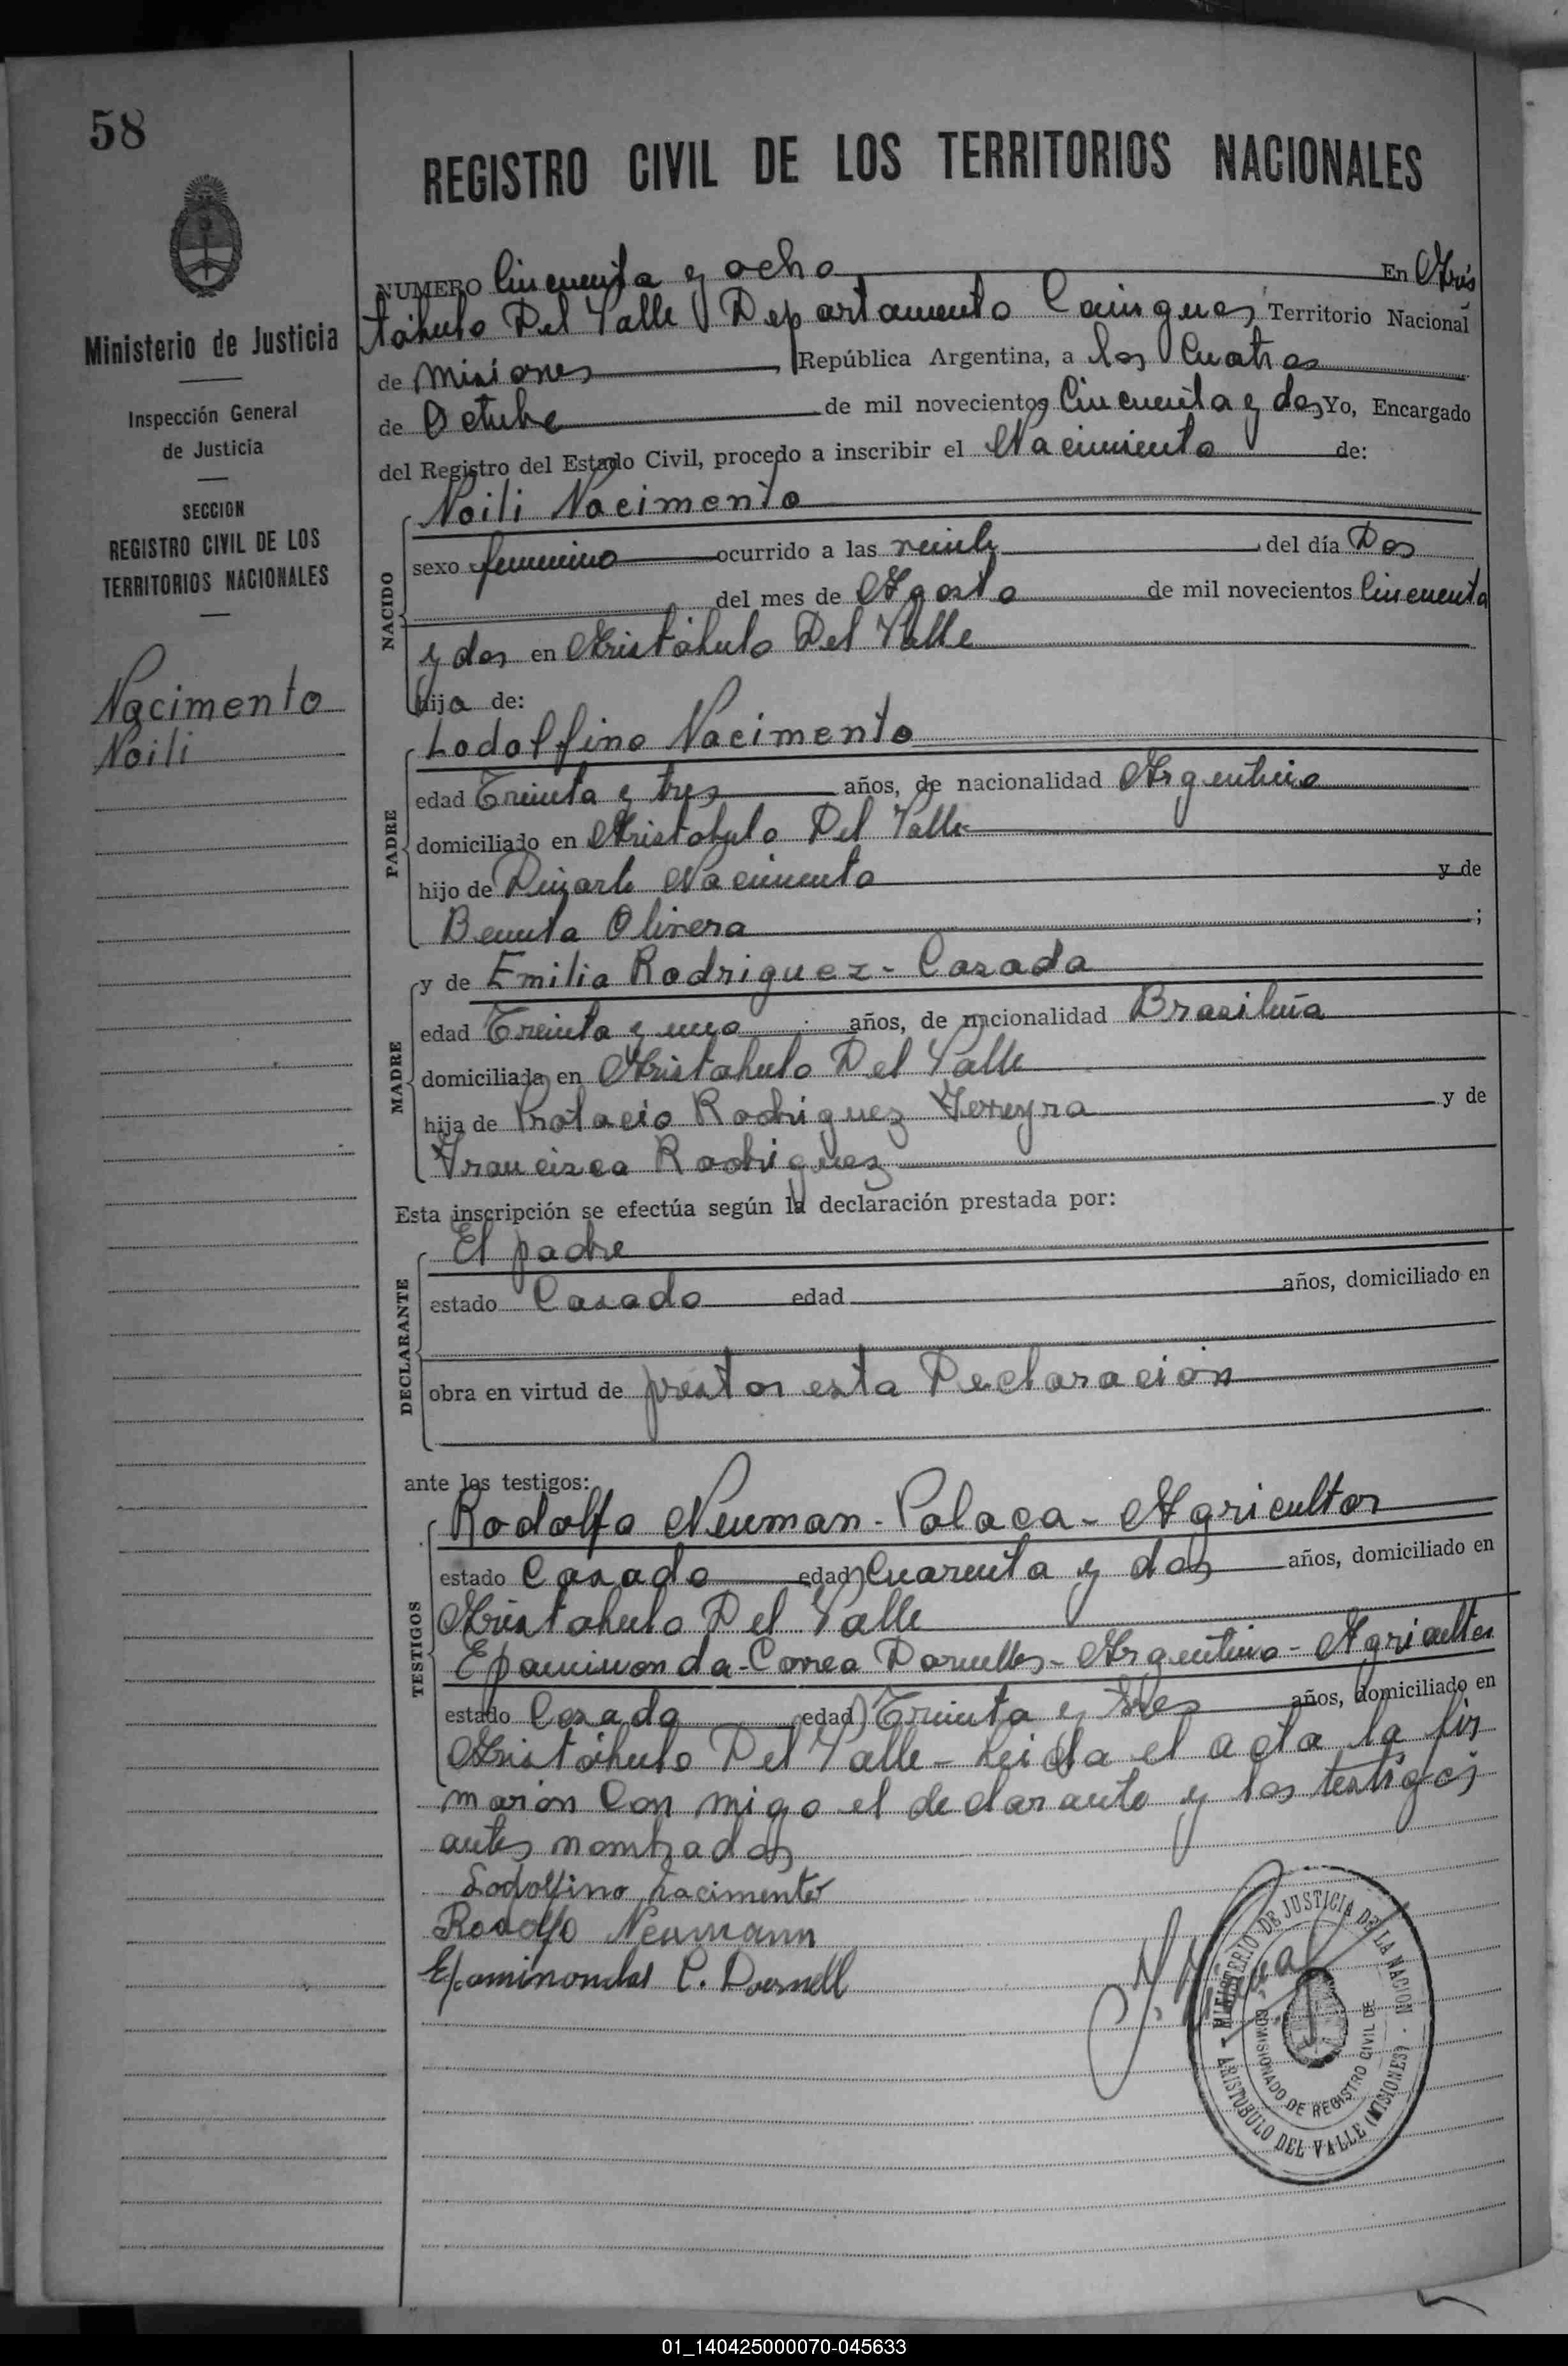 58
REGISTRO CIVIL DE LOS TERRITORIOS NACIONALES
Ministerio de Justicia
Inspección General
de Justicia
SECCION
REGISTRO CIVIL DE LOS
TERRITORIOS NACIONALES
Nacimento
Noili
NUMERO Cincuenta y ocho En Aris
tóbulo Del Valle Departamento Cainguas Territorio Nacional
de Misiones República Argentina, a los Cuatro
de Octubre de mil novecientos Cincuenta y dos Yo, Encargado
del Registro del Estado Civil, procedo a inscribir el Nacimiento de:
NACIDO
Noili Nacimento
sexo femenino ocurrido a las veinte del día Dos
del mes de Agosto de mil novecientos Cincuenta
y dos en Aristóbulo Del Valle
hija de:
PADRE
Lodolfino Nacimento
edad Treinta y tres años, de nacionalidad Argentino
domiciliado en Aristobulo Del Valle
hijo de Nacimento y de
Benita Olivera ;
MADRE
y de Emilia Rodriguez - Casada
edad Treinta y uno años, de nacionalidad Brasileña
domiciliada en Aristobulo Del Valle
hija de Protacio Rodriguez Ferreyra y de
Francisca Rodriguez
Esta inscripción se efectúa según la declaración prestada por:
DECLARANTE
El padre
estado Casado edad años, domiciliado en
obra en virtud de prestar esta Declaración
ante los testigos:
TESTIGOS
Rodolfo Neuman - Polaca - Agricultor
estado Casado edad Cuarenta y dos años, domiciliado en
Aristobulo Del Valle
Epaminonda - Correa Dornelles - Argentino - Agricultor
estado Casado edad Treinta y tres años, domiciliado en
Aristóbulo Del Valle - Leida el acta la fir
marón Con migo el declarante y los testigos
antes nombrados
Lodolfino Nacimento
Rodolfo Neumann
Epaminondas C. Dornell
MINISTERIO DE JUSTICIA DE LA NACION
COMISIONADO DE REGISTRO CIVIL DE
ARISTOBULO DEL VALLE (MISIONES)
01_140425000070-045633